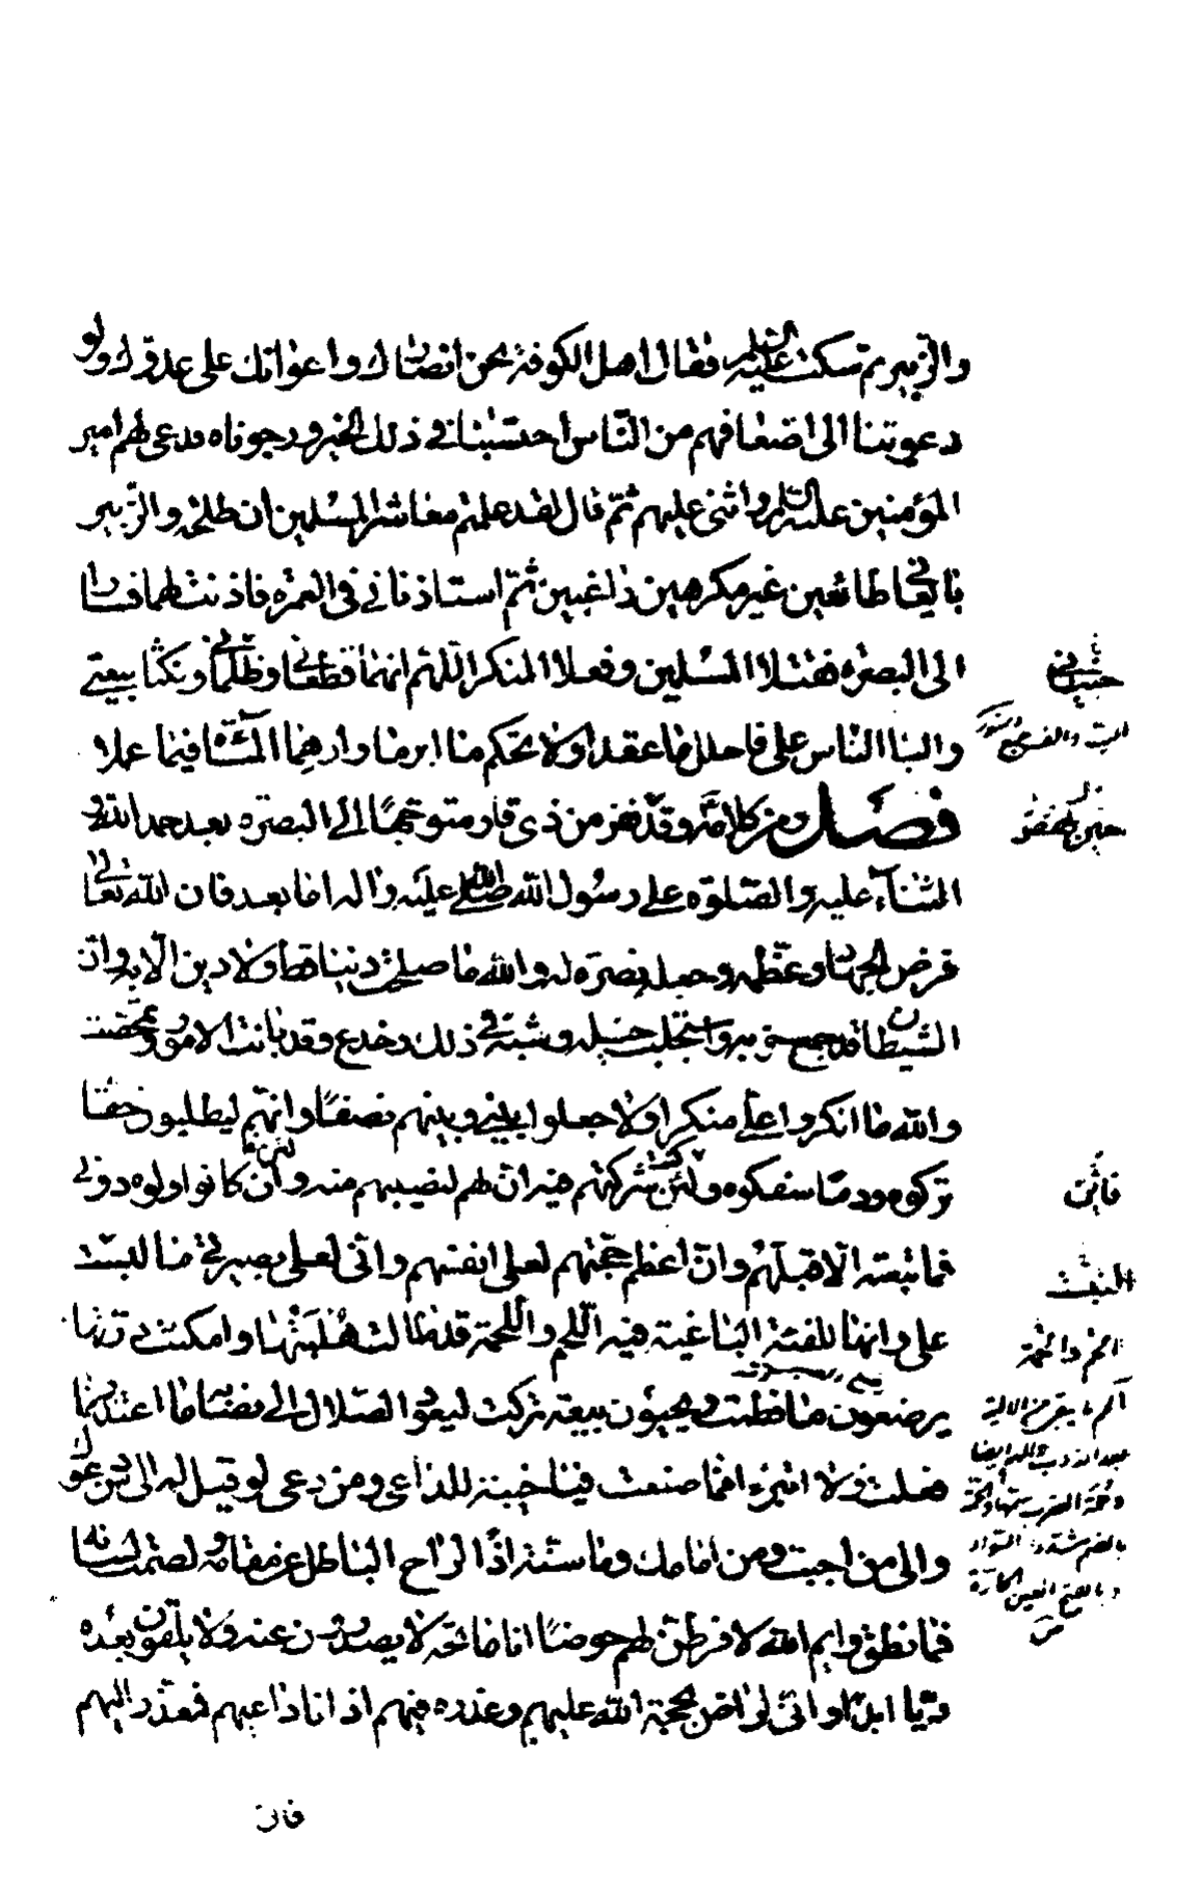 والزبير ثم سكت عليه السلام فقال اهل الكوفة نحن انصارك واعوانك على عدوك ولو
دعوتنا الى اضعافهم من الناس احتسبنا في ذلك الخير ورجوناه فدعى لهم امير
المؤمنين عليه السلام واثنى عليهم ثم قال لقد علمتم معاشر المسلمين ان طلحة والزبير
بايعاني طائعين غير مكرهين راغبين ثم استاذناني في العمرة فاذنت لهما فسارا
الى البصرة فقتلا المسلمين وفعلا المنكر اللهم انهما قطعاني وظلماني ونكثا بيعتي
والبا الناس علي فاحلل ما عقدا ولا تحكم ما ابرما وارهما المساءة فيما عملا
فصل ومن كلامه وقد نفر من ذي قار متوجها الى البصرة بعد حمد الله و
الثناء عليه والصلوة على رسول الله صلى الله عليه واله اما بعد فان الله تعالى
فرض الجهاد وعظمه وجعله نصرة له والله ما صلحت دنيا قط ولا دين الا به وان
الشيطان قد جمع حزبه واستجلب خيله وشبه في ذلك وخدع وقد بانت الامور وتمحضت
والله ما انكروا علي منكرا ولا جعلوا بيني وبينهم نصفا وانهم ليطلبون حقا
تركوه ودما سفكوه ولئن كنت شركتهم فيه ان لهم لنصيبهم منه وان كانوا ولوه دوني
فما تبعته الا قبلهم وان اعظم حجتهم لعلى انفسهم واني لعلى بصيرتي ما لبست
علي وانها للفئة الباغية فيه اللحم واللحمة قد طالت هلبتها وامكنت درتها
يرضعون ما فطمت ويحيون بيعة تركت ليعود الضلال الى نصابه ما اعتذر مما
فعلت ولا اتبرء مما صنعت فيا خيبة للداعي ومن دعى لو قيل له الى من دعواك
والى من اجبت ومن امامك وما سنته اذا لزاح الباطل عن مقامه ولصمت لسانه
فما نطق وايم الله لافرطن لهم حوضا انا ماتحه لا يصدرون عنه ولا يلقون بعده
ريا ابدا واني لراض بحجة الله عليهم وعذره فيهم اذ انا داعيهم فمعذر اليهم
فان